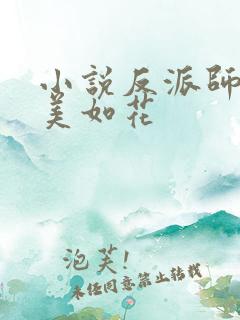 小說反派師
美如花
泡芙!
未经同意禁止转载